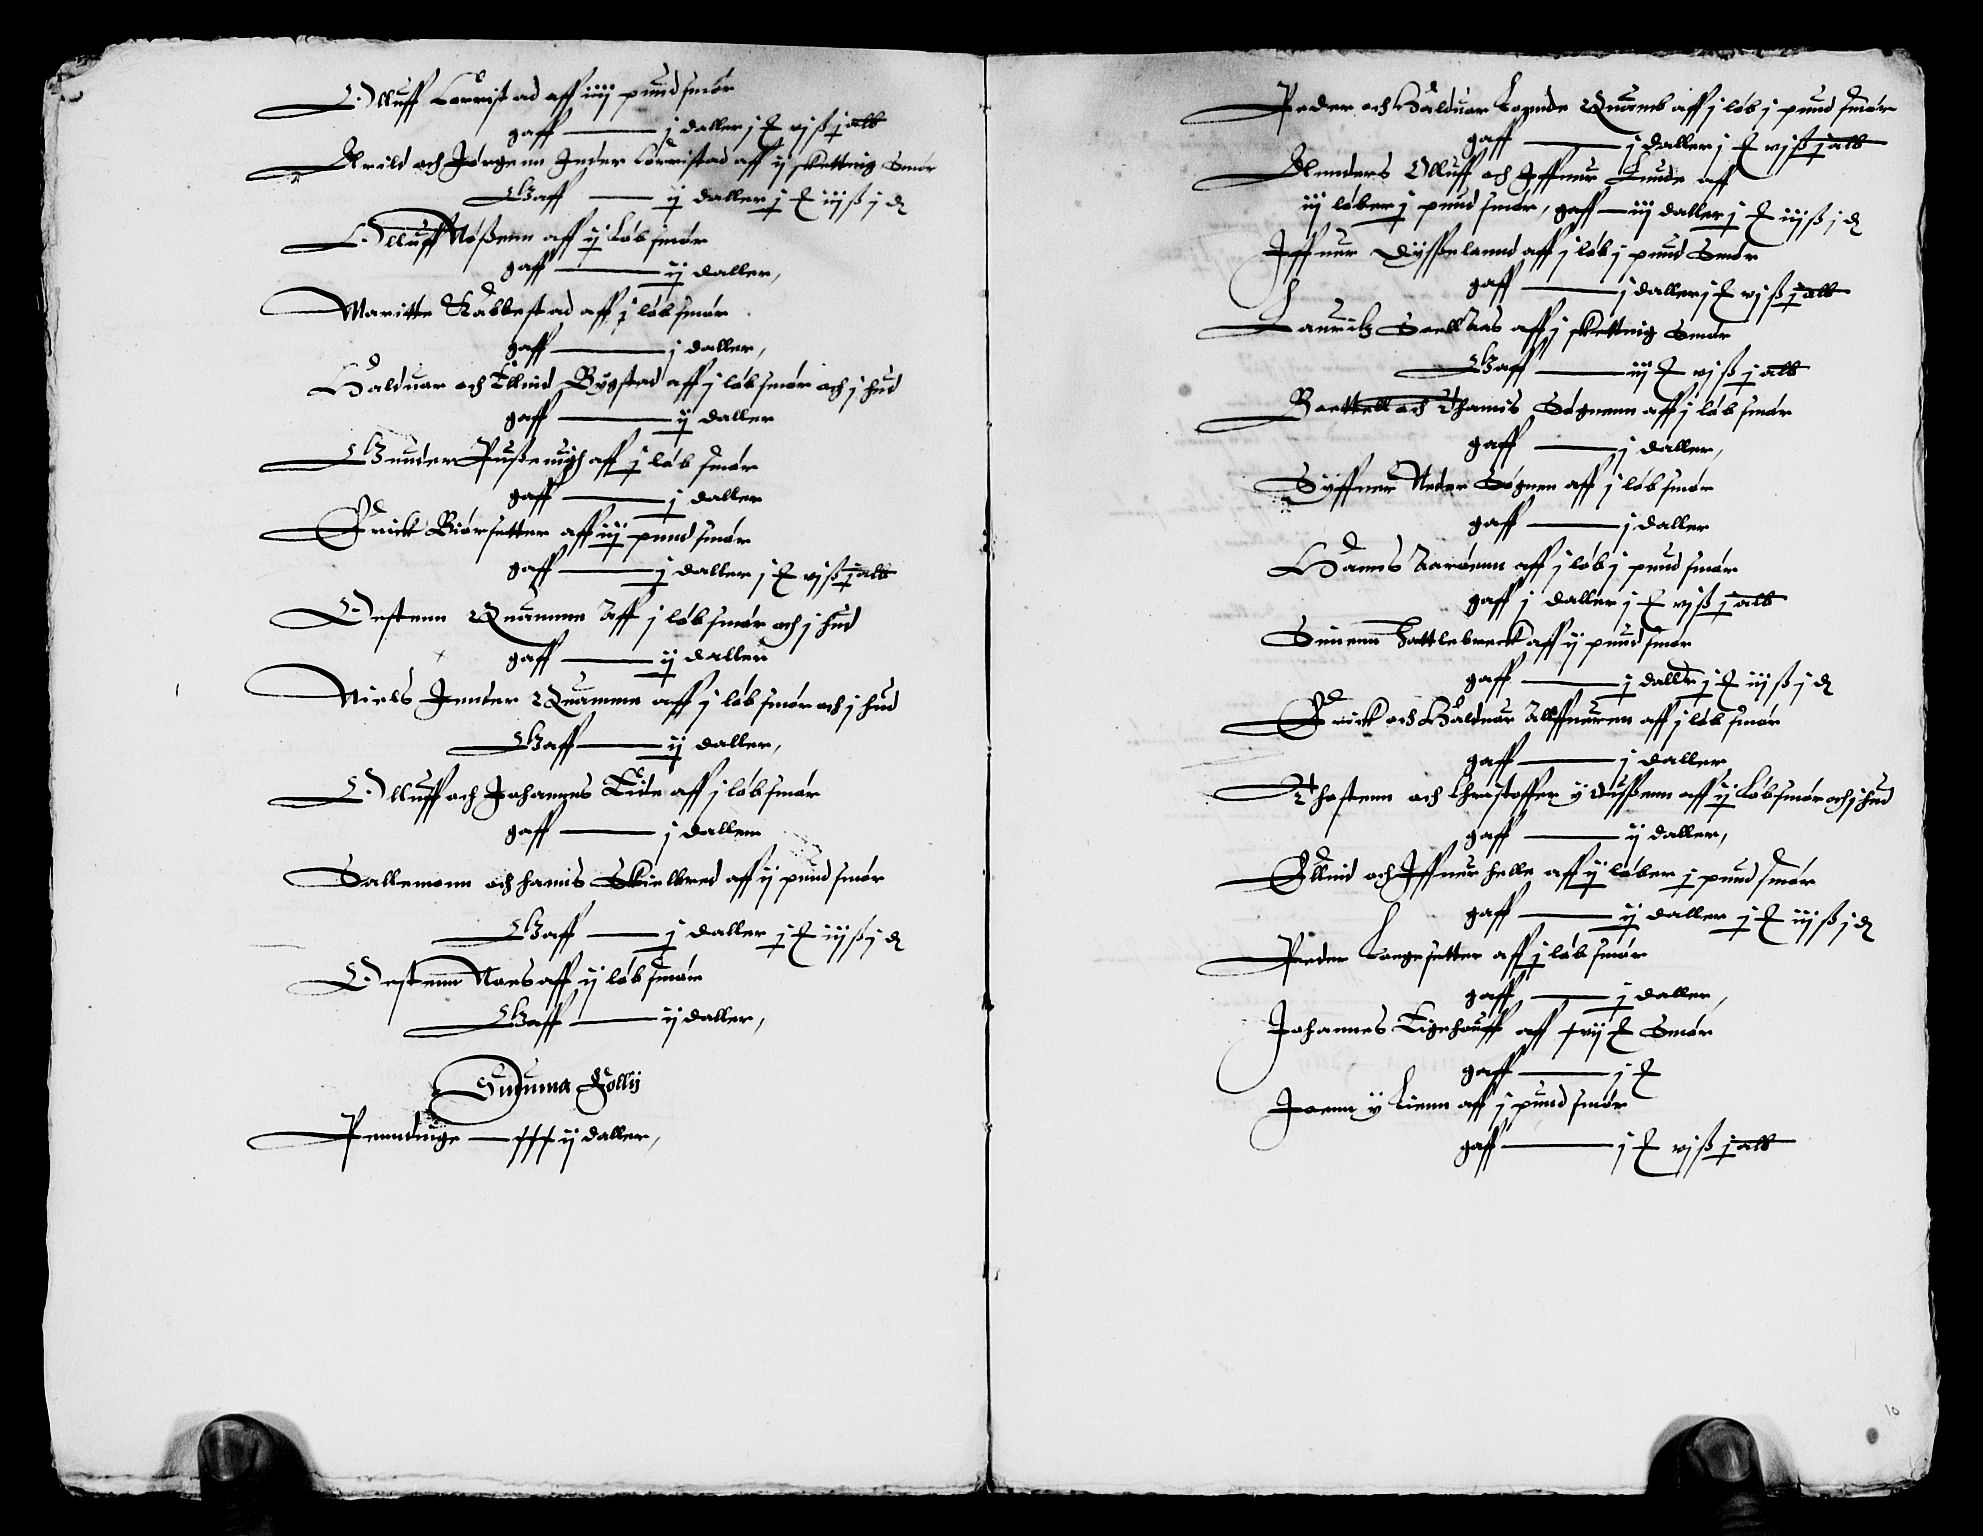 Olluff Torristad aff iiij pund smør
gaff — j daller j £ vj ß j alb
Arild och Jørgenn Inder Torristad aff ij skettnig Smør
Gaff — ij daller j £ iij ß j ₰
Olluff Nößenn aff ij Løb smør
gaff — ij daller,
Maritte Kabbestad aff j løb smør
gaff — j daller,
Halduar och Ellind Bygstad aff j løb smør och j hud
gaff — ij daller
Gunder aff j løb smør
gaff — j daller
Erick Biørsetter aff iij pund smør
gaff — j daller j £ vj ß j alb
Oestenn Quamme Aff j løb smør och j hud
gaff — ij daller
Niels Inder Quamme aff j løb smør och j hud
Gaff — ij daller,
Olluff och Johannes Eide aff j løb smør
gaff — j daller
Sallemonn och hanns Skielbred aff ij pund smør
Gaff — j daller j £ iij ß j ₰
Oestenn Noes aff ij løb smør
Gaff — ij daller,
Summa Folly
Penndinge — xxx ij daller,
Peder och Halduar Quamb aff j løb j pund smør
gaff — j daller j £ vj ß j alb
Annders Olluff och Iffuer Lunde aff
iij løber j pund smør, gaff — iij daller j £ iij ß j ₰
Iffuer aff j løb j pund Smør
gaff — j daller j £ vj ß j alb
Lauritz aff j skettnig Smør
Gaff — iij £ vj ß j alb
Boettell och Thamis Søgnenn aff j løb smør
gaff — j daller,
Syffuer Neder Søgnen aff j løb smør
gaff — j daller
Hanns Aarøenn aff j løb j pund smør
gaff j daller j £ vj ß j alb
Suenn Hattlebreck aff ij pund smør
gaff — j daller j £ iij ß j ₰
Erick och Halduor aff j løb smør
gaff — j daller
Thostenn och Christoffer y aff ij Løb smør och j hud
gaff — ij daller,
Ellind och Iffuer Helle aff ij løber j pund smør
gaff — ij daller j £ iij ß j ₰
Peder Langesetter aff j løb smør
gaff — j daller,
Johannes aff xvij £ Smør
gaff — j £
Joenn y Lienn aff j pund smør
gaff — j £ vj ß j alb
10